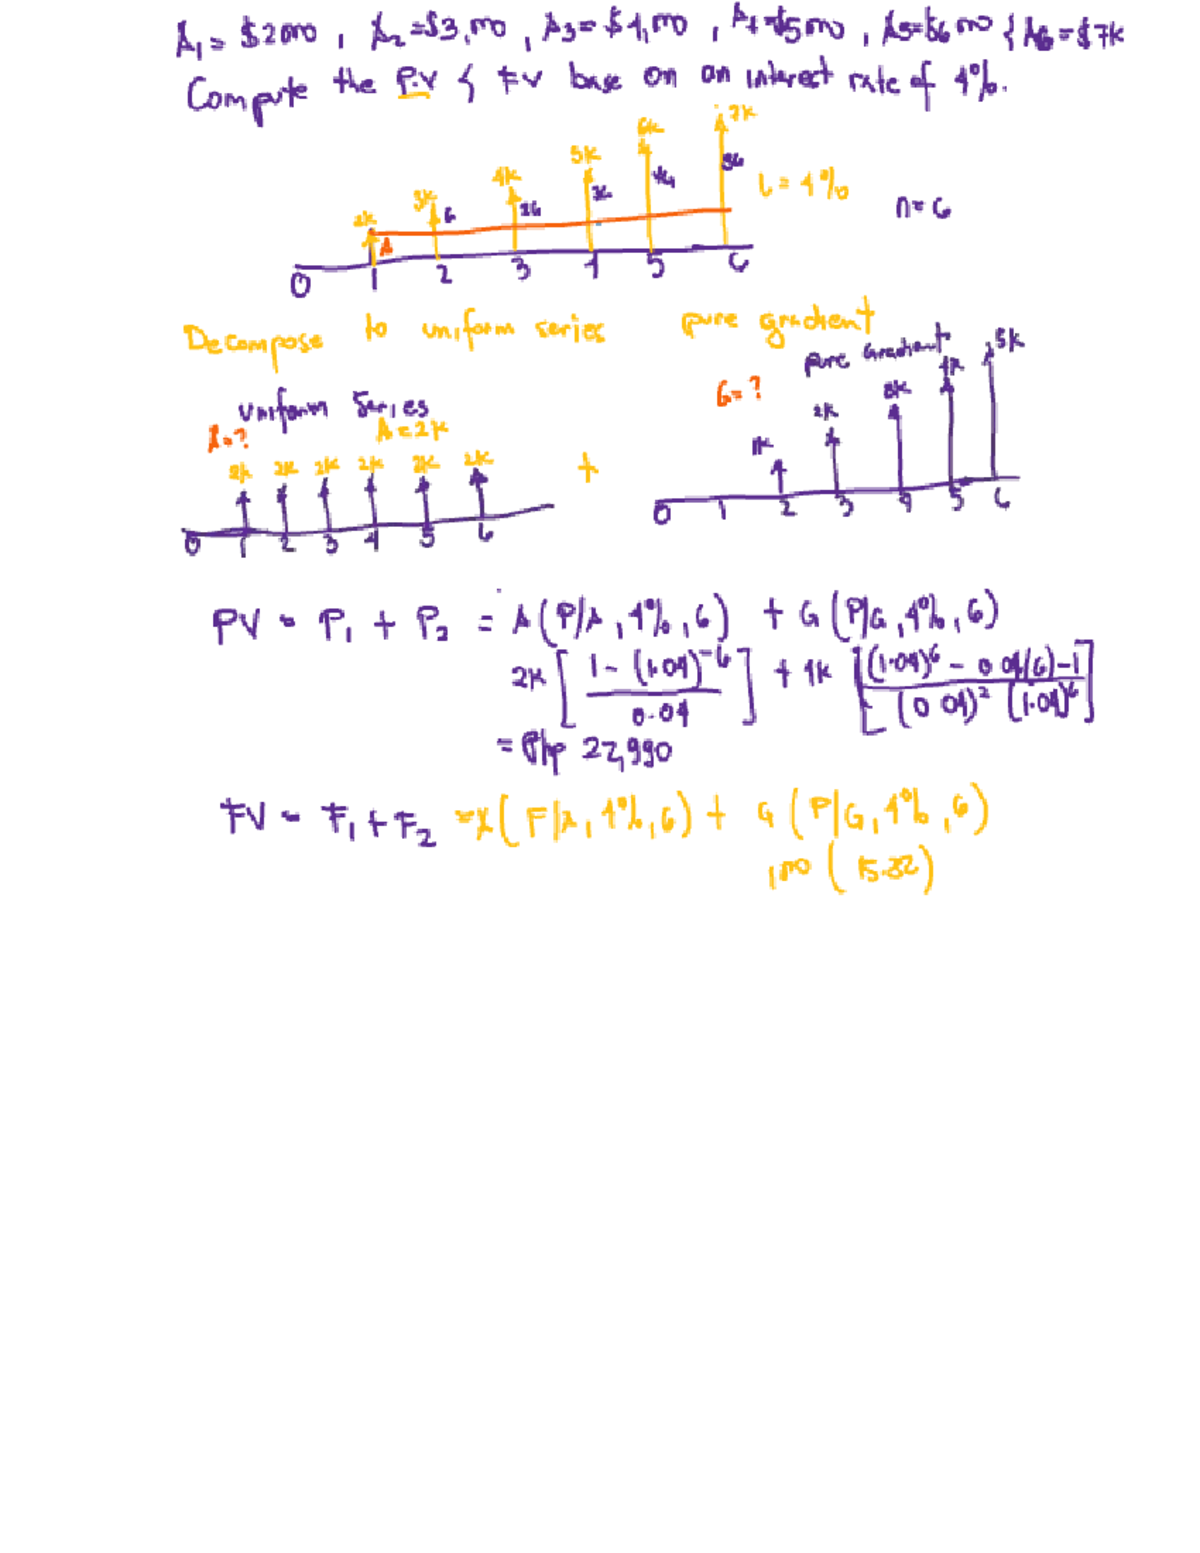 A1 = $2000, A2 = $3,000, A3 = $4,000, A4 = $5000, A5 = $6000 & A6 = $7k
Compute the P.V & FV base on an interest rate of 4%.
2k 3k 4k 5k 6k 7k
A G 2G 3G 4G 5G
i = 4%
n = 6
0 1 2 3 4 5 6
Decompose to uniform series pure gradient
Uniform Series
A = ?
A = 2k
2k 2k 2k 2k 2k 2k
0 1 2 3 4 5 6
+
Pure Gradient
G = ?
1k 2k 3k 4k 5k
0 1 2 3 4 5 6
PV = P1 + P2 = A (P/A, 4%, 6) + G (P/G, 4%, 6)
2k [ 1 - (1.04)^-6 / 0.04 ] + 1k [ (1.04)^6 - 0.04(6) - 1 / (0.04)^2 (1.04)^6 ]
= Php 22,990
FV = F1 + F2 = A (F/A, 4%, 6) + G (P/G, 4%, 6)
1000 (15.82)